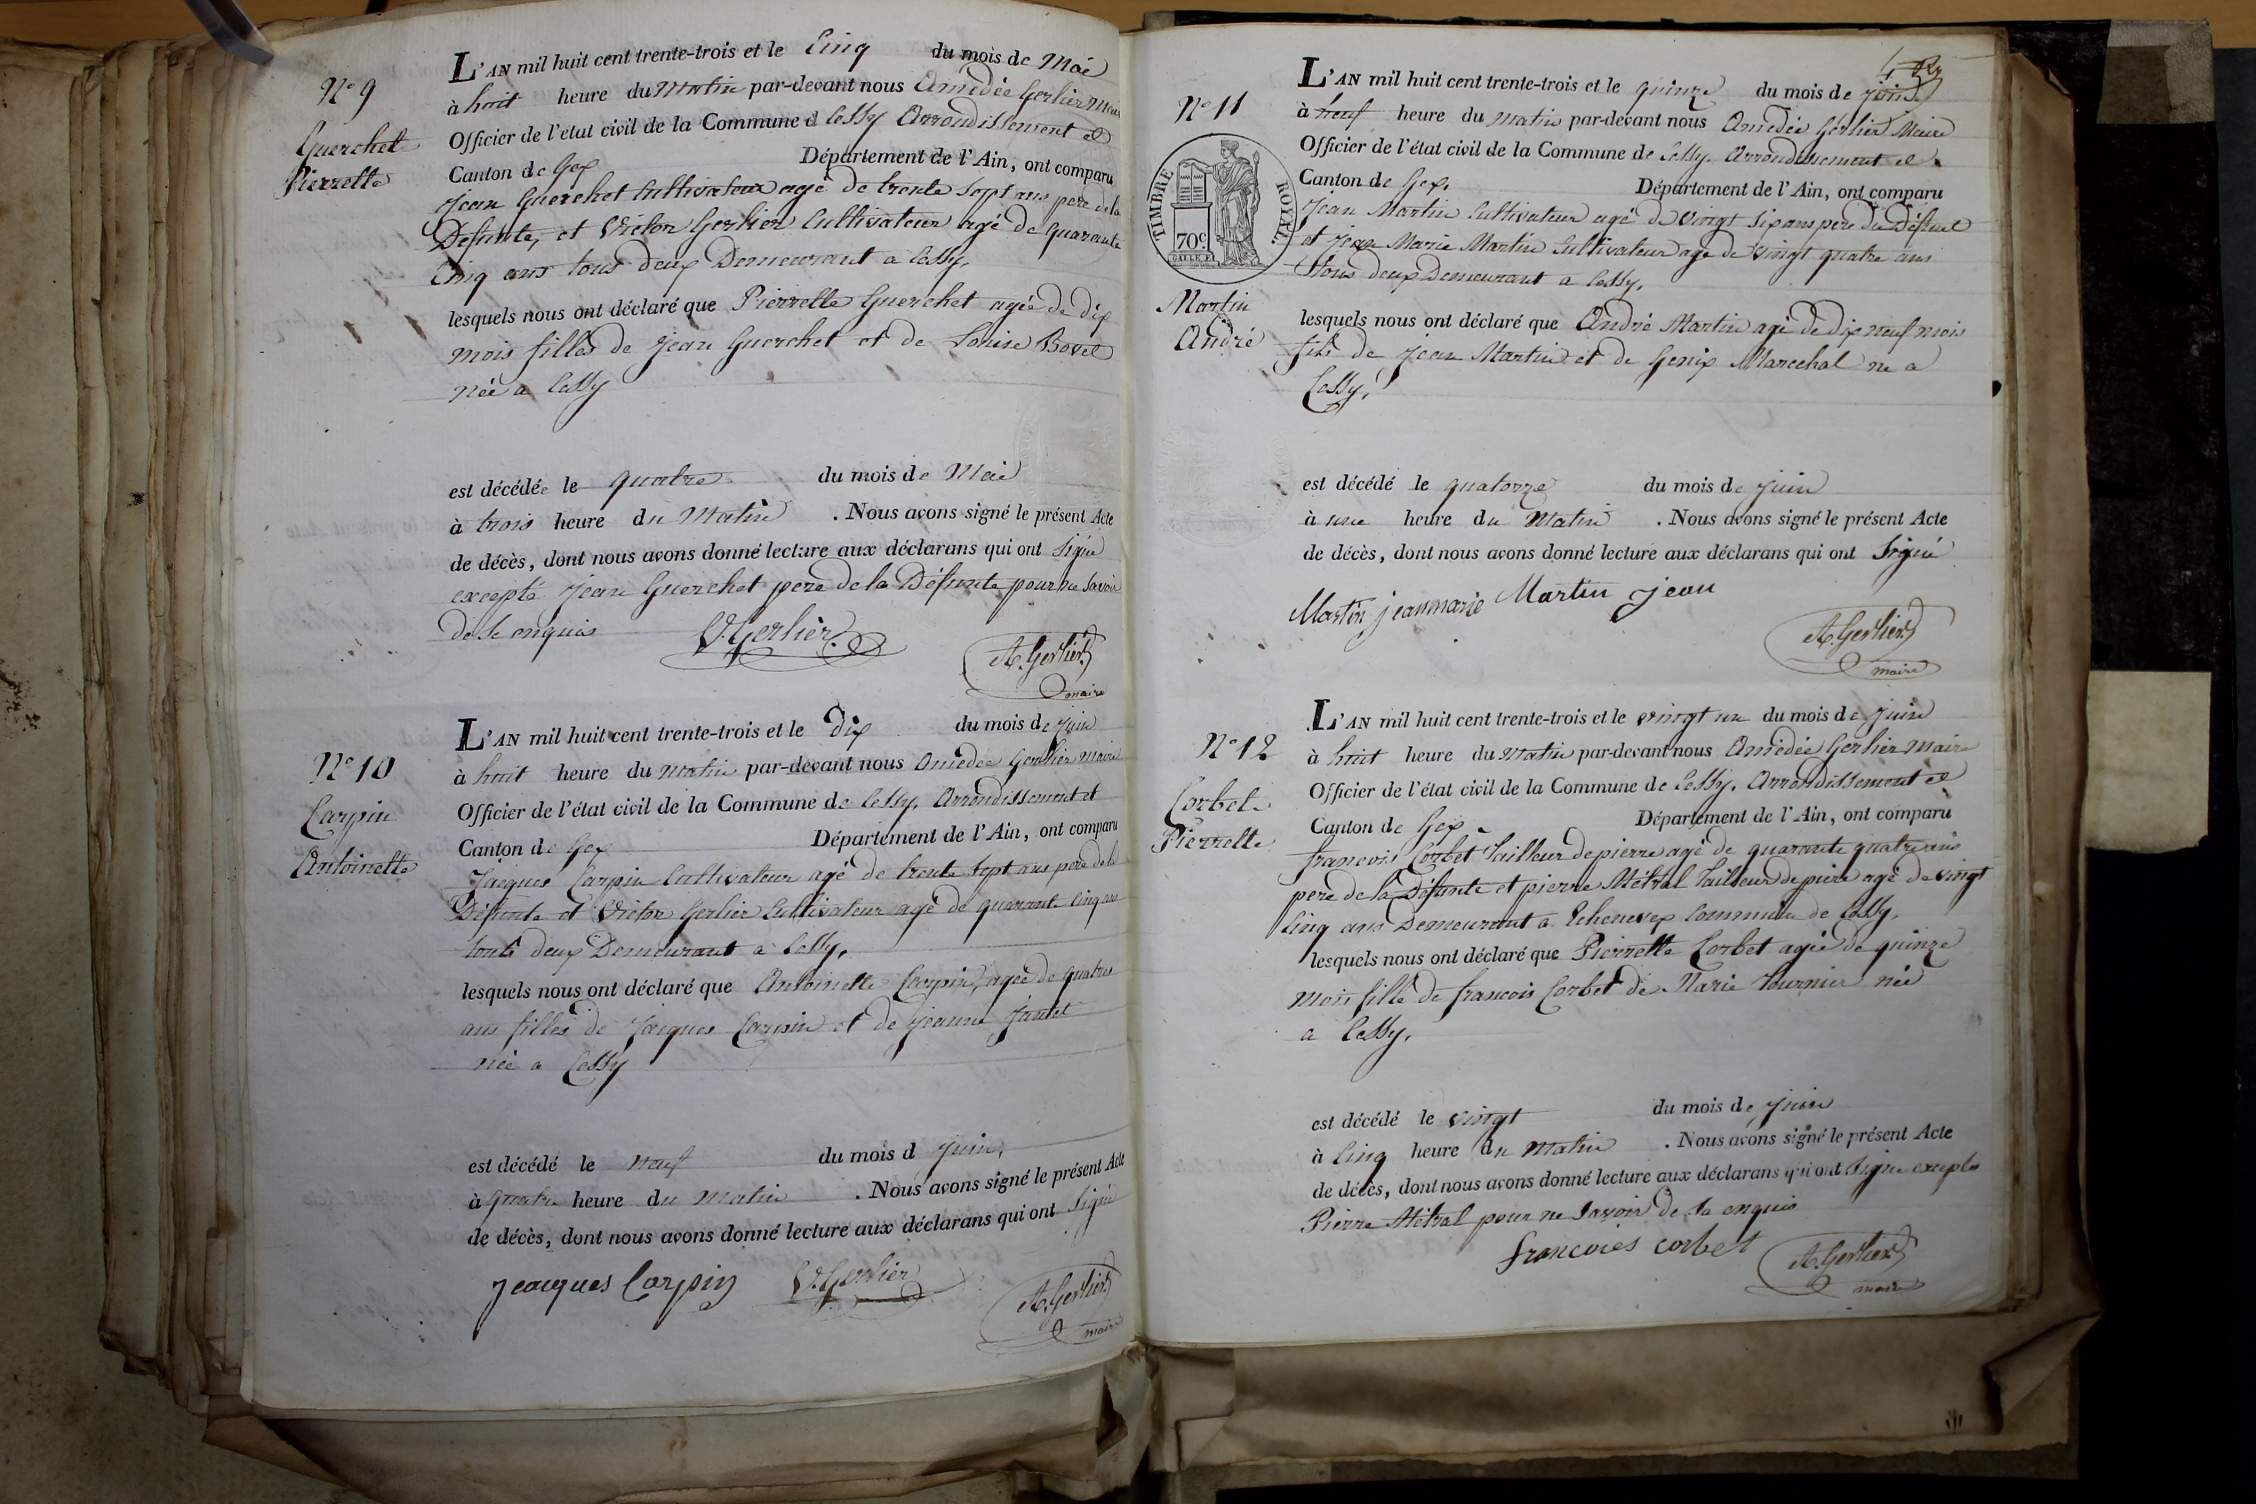 N° 9
Guerchet
Pierrette
L'AN mil huit cent trente-trois et le Cinq du mois de Mai
à huit heure du Matin par-devant nous Amédée Gerlier Maire
Officier de l'état civil de la Commune d Cessy Arrondissement et
Canton de Gex Département de l'Ain, ont comparu
Jean Guerchet Cultivateur agé de trente Sept ans pere de la
Defunte, et Victor Gerlier Cultivateur agé de quarante
Cinq ans tous deux Demeurant a Cessy,
lesquels nous ont déclaré que Pierrette Guerchet agée de dix
mois filles de Jean Guerchet et de Louise Bovet
née a Cessy
est décédée le quatre du mois de Mai
à trois heure du Matin . Nous avons signé le présent Acte
de décès, dont nous avons donné lecture aux déclarans qui ont Signé
excepté Jean Guerchet pere de la Défunte pour ne Savoir
de Se enquis V. Gerlier
A. Gerlier
maire
N° 10
Carpin
Antoinette
L'AN mil huit cent trente-trois et le dix du mois de Juin
à huit heure du Matin par-devant nous Amédée Gerlier Maire
Officier de l'état civil de la Commune de Cessy, Arrondissement et
Canton de Gex Département de l'Ain, ont comparu
Jacques Carpin Cultivateur agé de trente Sept ans pere de la
Défunte et Victor Gerlier Cultivateur agé de quarante Cinq ans
touts deux Demeurant a Cessy,
lesquels nous ont déclaré que Antoinette Carpin, agée de quatre
ans filles de Jacques Carpin et de Jeanne
née a Cessy
est décédé le neuf du mois d Juin,
à quatre heure du Matin . Nous avons signé le présent Acte
de décès, dont nous avons donné lecture aux déclarans qui ont Signé
Jeacques Carpin V. Gerlier
A. Gerlier
maire
4
N° 11
TIMBRE ROYAL
70c
Martin
André
L'AN mil huit cent trente-trois et le quinze du mois de Juin
à neuf heure du Matin par-devant nous Amédée Gerlier Maire
Officier de l'état civil de la Commune de Cessy. Arrondissement et
Canton de Gex. Département de l'Ain, ont comparu
Jean Martin Cultivateur agé de Vingt Six ans pere du Défunt
et Jean Marie Martin Cultivateur age de Vingt quatre ans
tous deux Demeurant a Cessy.
lesquels nous ont déclaré que André Martin agé de dix neuf mois
fils de Jean Martin et de Marechal né a
Cessy,
est décédé le quatorze du mois de Juin
à une heure du Matin . Nous avons signé le présent Acte
de décès, dont nous avons donné lecture aux déclarans qui ont Signé
Martin jeanmarie Martin jean
A. Gerlier
maire
N° 12
Corbet
Pierrette
L'AN mil huit cent trente-trois et le vingt un du mois de Juin
à huit heure du Matin par-devant nous Amédée Gerlier Maire
Officier de l'état civil de la Commune de Cessy. Arrondissement et
Canton de Gex Département de l'Ain, ont comparu
francois Corbet Tailleur de pierre agé de quarante quatre ans
pere de la Défunte et pierre Métral Tailleur de piere agé de vingt
Cinq ans Demeurant a Echenevex Commune de Cessy.
lesquels nous ont déclaré que Pierrette Corbet agée de quinze
mois fille de francois Corbet de Marie Tournier née
a Cessy.
est décédé le vingt du mois de Juin
à Cinq heure du Matin . Nous avons signé le présent Acte
de décès, dont nous avons donné lecture aux déclarans qui ont Signe excepte
Pierre Métral pour ne Savoir de Sa enquis
francoies corbet
A. Gerlier
maire